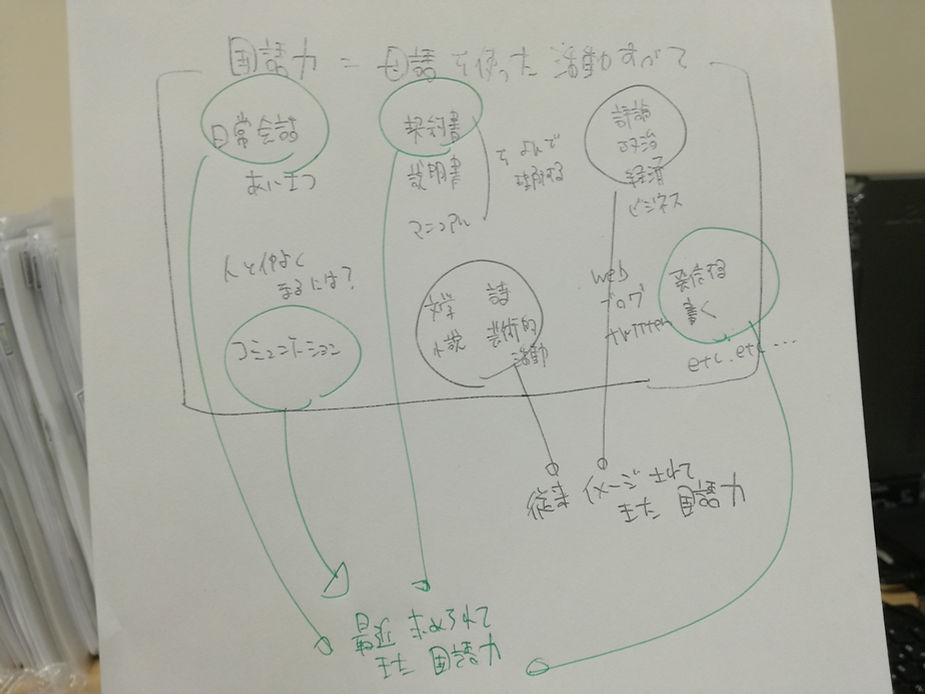 国語力 = 国語を使った活動すべて
日常会話
あいさつ
人と仲よく
するには?
コミュニケーション
契約書
説明書
マニュアル
をよんで
理解する
評論
政治
経済
ビジネス
文学
小説
詩
芸術的
活動
web
ブログ
twitter
発信する
書く
etc. etc...
従来 イメージされて
きた 国語力
最近 求められて
きた 国語力